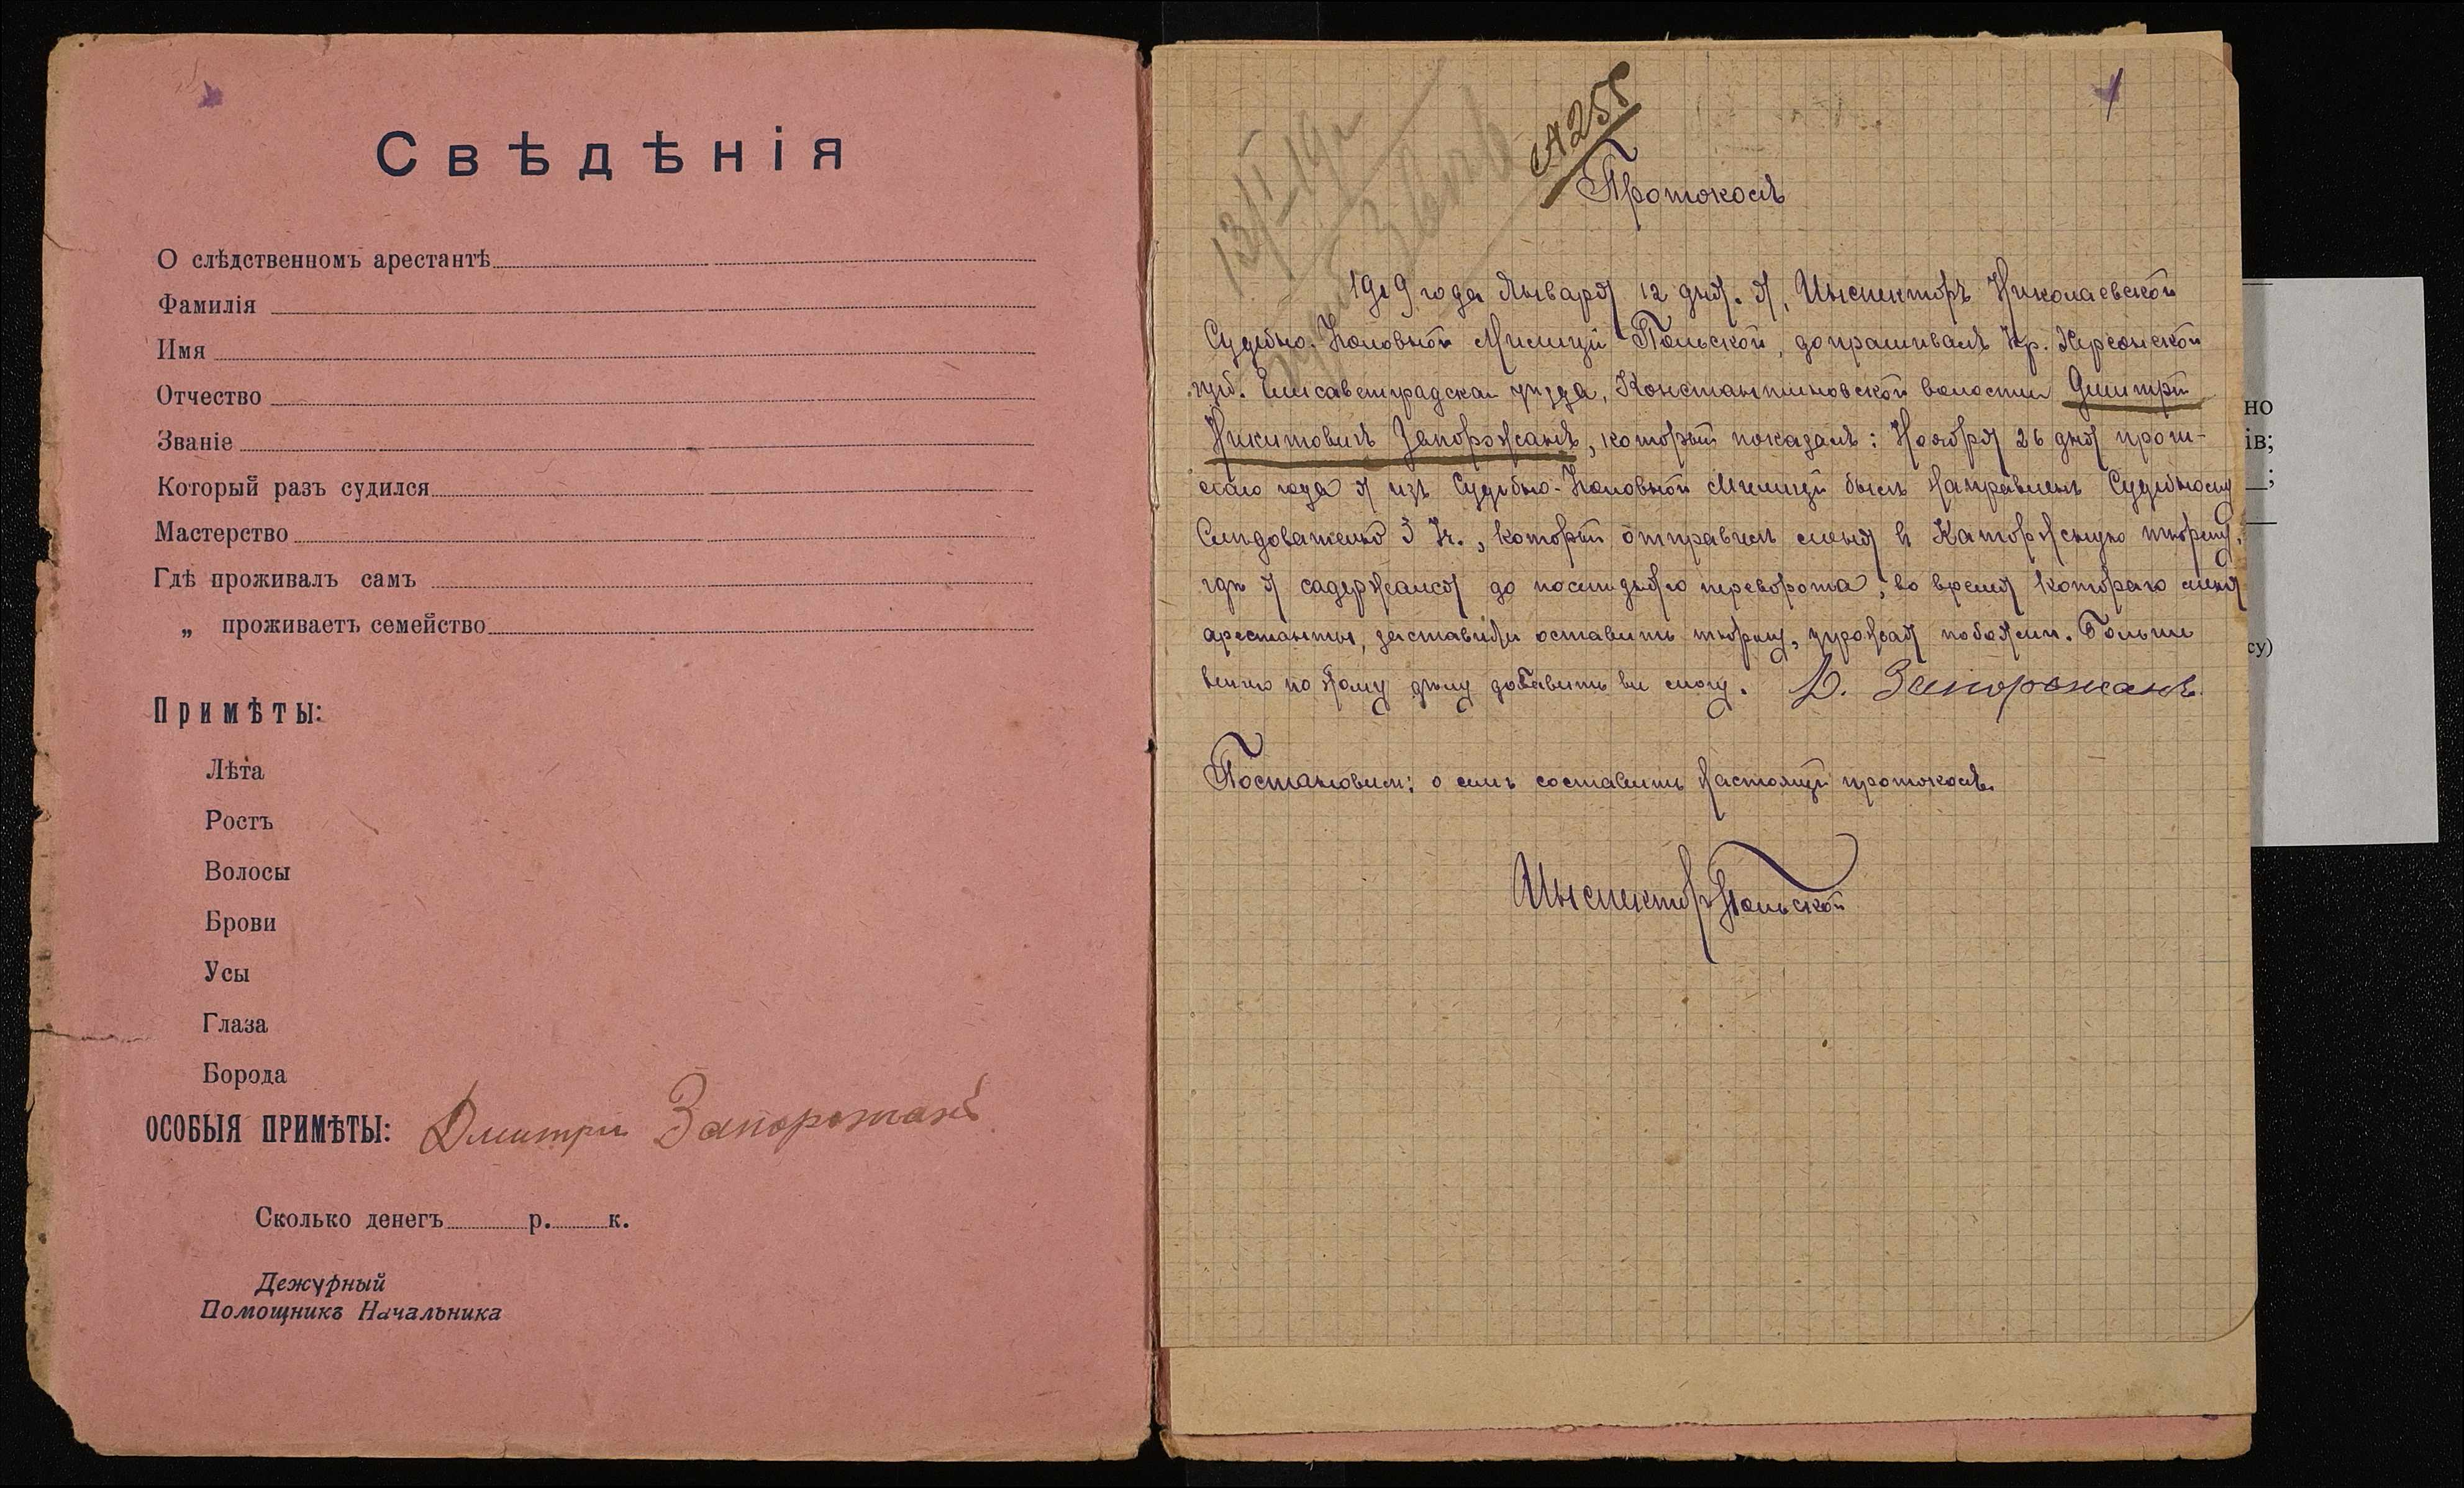 Свѣдѣнія
О слѣдственномъ арестантѣ
Фамилія
Имя
Отчество
Званіе
Который разъ судился
Мастерство
Гдѣ проживалъ самъ
„ проживаетъ семейство
Примѣты:
Лѣта
Ростъ
Волосы
Брови
Усы
Глаза
Борода
ОСОБЫЯ ПРИМѢТЫ: Дмитри Запорожанъ
Сколько денегъ р. к.
Дежурный
Помощникъ Начальника
13/I-19г
Протоколъ
1919 года Января 12 дня. Я, Инспекторъ Николаевской
Судебно-Уголовной Милиціи Польской, допрашивалъ кр. Херсонской
губ. Елисаветградскаг уѣзда, Константиновской волости Дмитрій
Никитовичъ Запорожанъ, который показалъ: Ноября 26 дня прош-
лаго года я изъ Судебно-Уголовной Милиціи былъ направленъ Судебному
Слѣдователю 3 Уч., который отправилъ меня в Каторжную тюрьму,
гдѣ я садержался до послѣдняго переворота, во время котораго меня
арестанты, заставили оставить тюрьму, угрожая побоями. Больше
ничего по этому дѣлу добавить не могу. Д. Запорожанъ
Постановил: о семъ составить настоящій протоколъ.
Инспекторъ Польской
но
ів;
;
су)